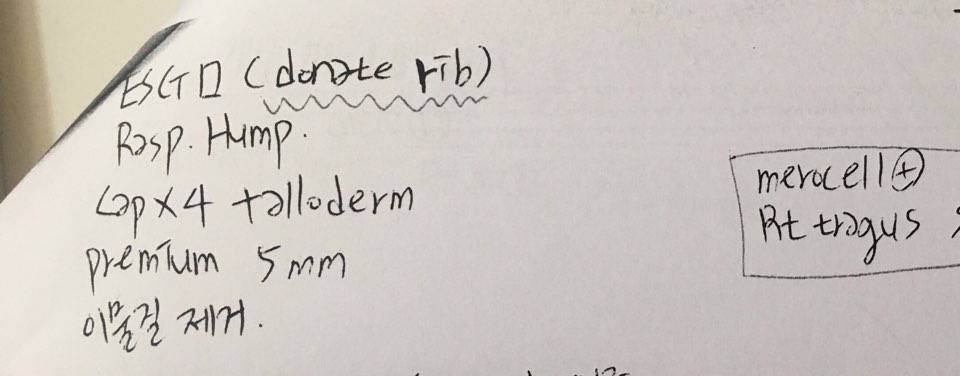 ESG ㅁ (donate rib)
Rasp. Hump.
cap x 4 + alloderm
premium 5mm
이물질 제거.
merocell ⊕
Rt tragus